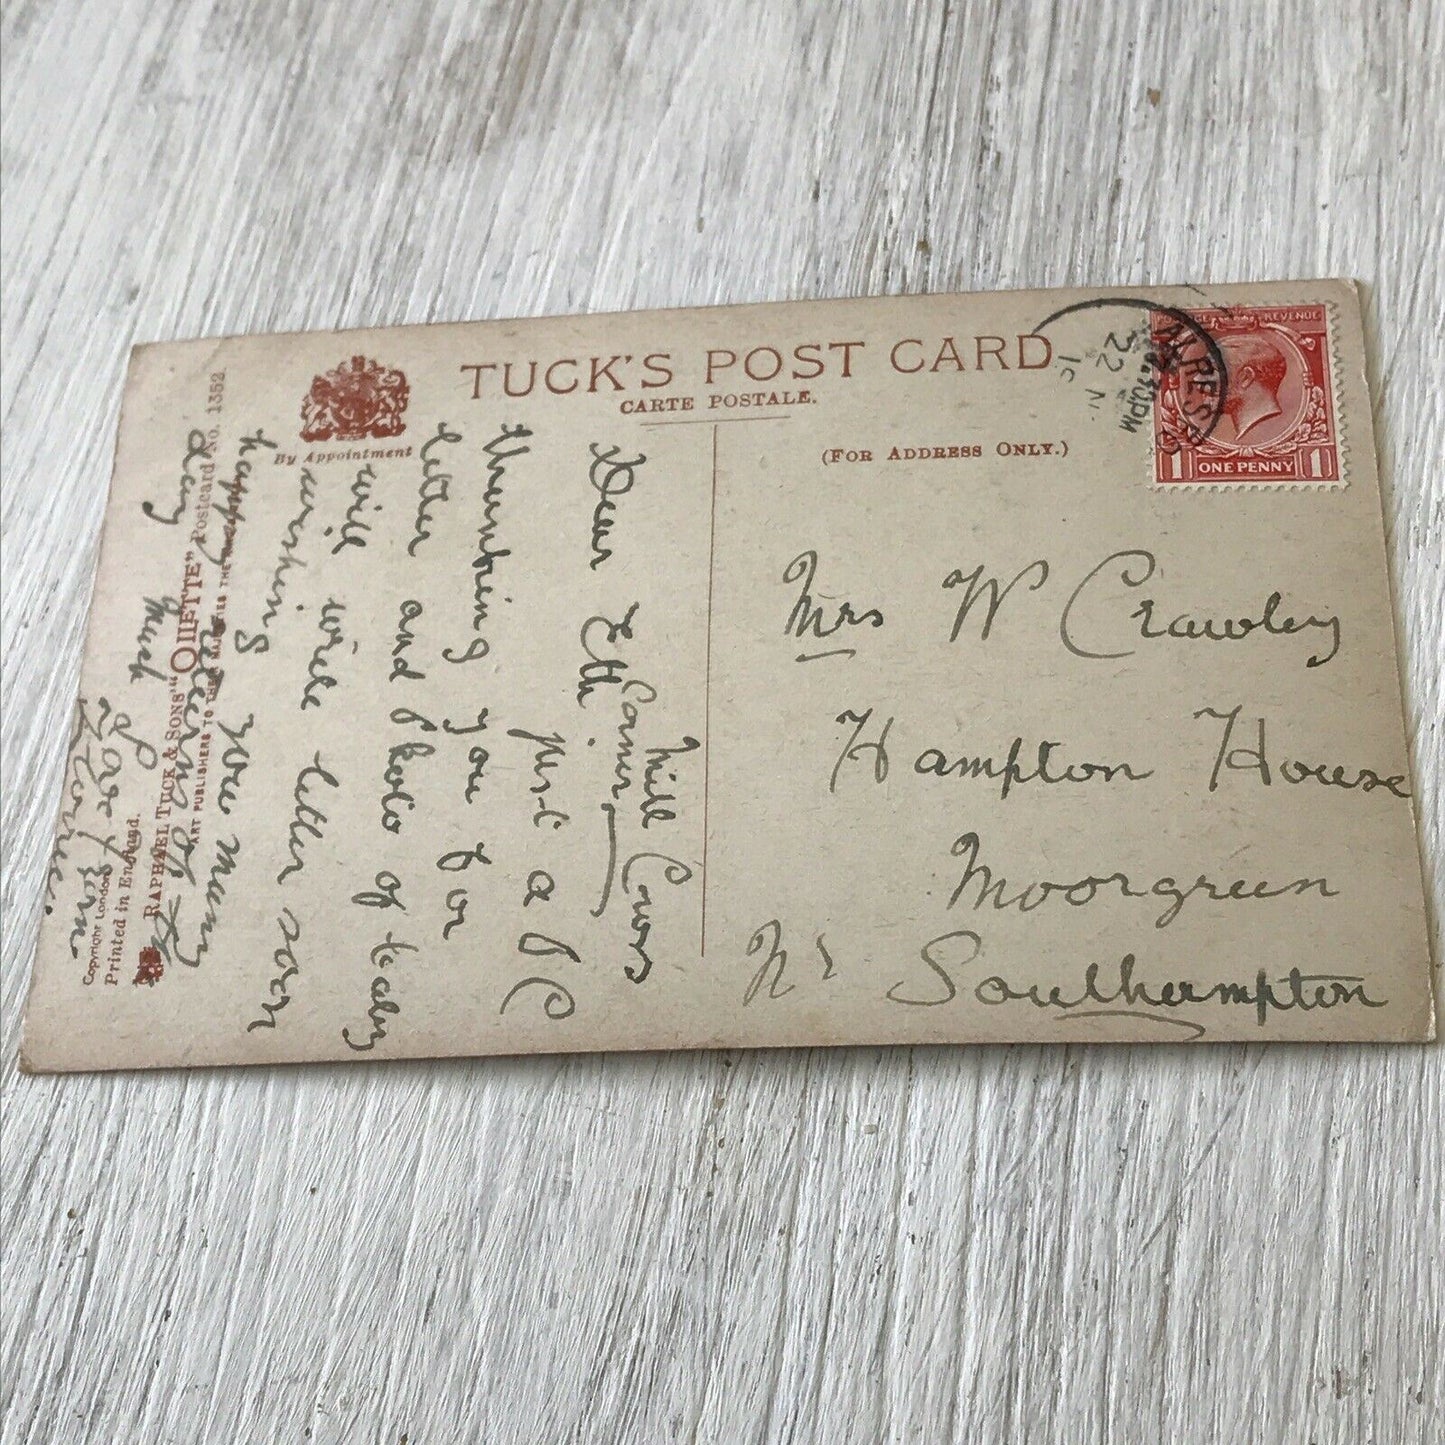 TUCK'S POST CARD
CARTE POSTALE.
By Appointment
(FOR ADDRESS ONLY.)
POSTAGE REVENUE
1 ONE PENNY 1
ALRESFO
30PM
22 N
Mrs W Crawley
Hampton House
Moorgreen
Nr Southampton
Mill
Corner
Dear Eth
just a PC
thanking you for
letter and Photo of baby
will write letter soon
wishing you many
happy returns of the
day
Much Love from
RAPHAEL TUCK & SONS' "OILETTE" Postcard No. 1352.
ART PUBLISHERS TO THEIR MAJESTIES THE
Copyright London
Printed in England.